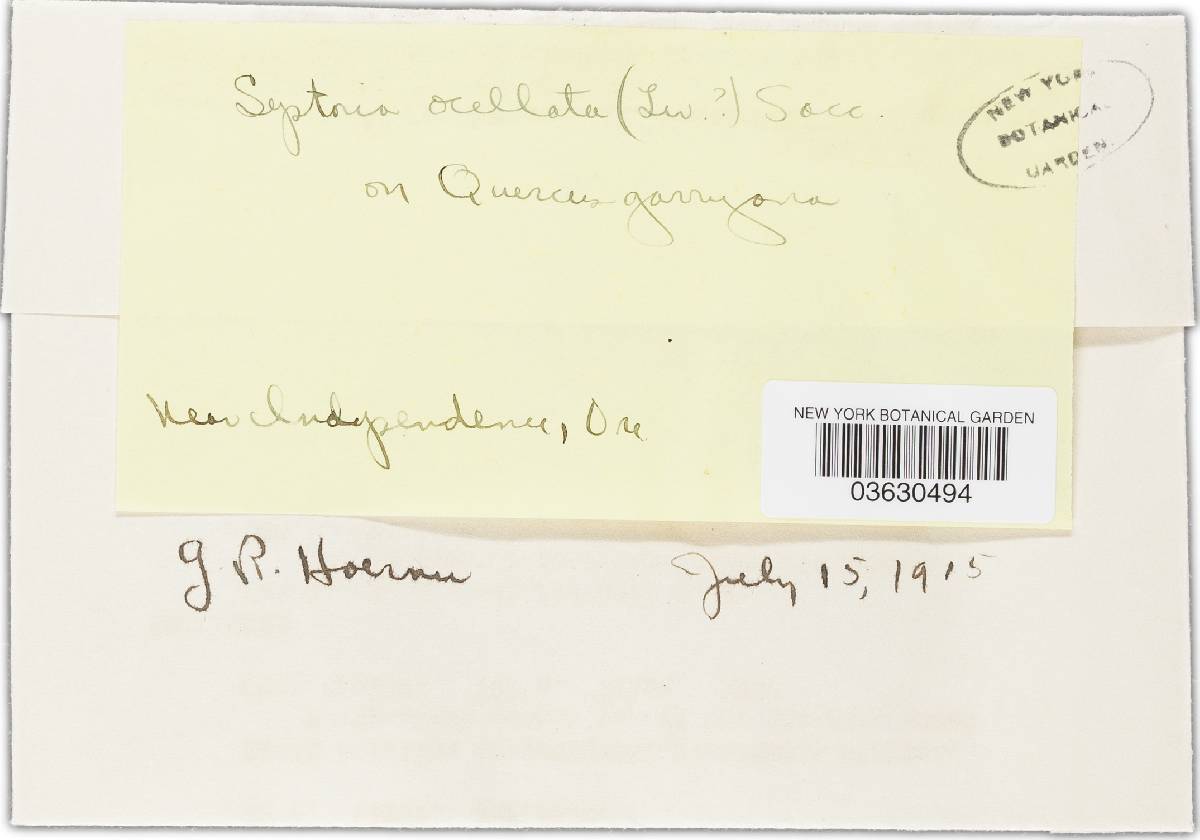 Septoria ocellata (Lev.?) Sacc.
on Quercus garryana
NEW YORK
BOTANICAL
GARDEN
Near Independence, Ore
NEW YORK BOTANICAL GARDEN
03630494
G. R. Hoerner
July 15, 1915